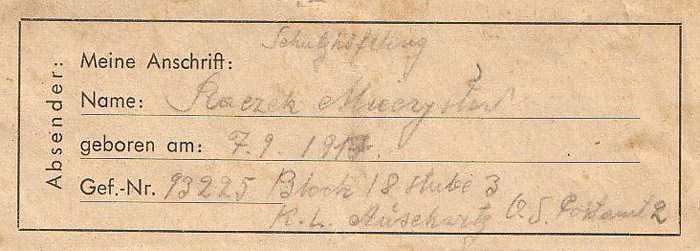 Absender:
Schutzhäftling
Meine Anschrift:
Name: Raczek Mieczysław
geboren am: 7.9. 1917.
Gef.-Nr. 93225 Block 18 stube 3
K.L. Auschwitz O.S. Postamt 2